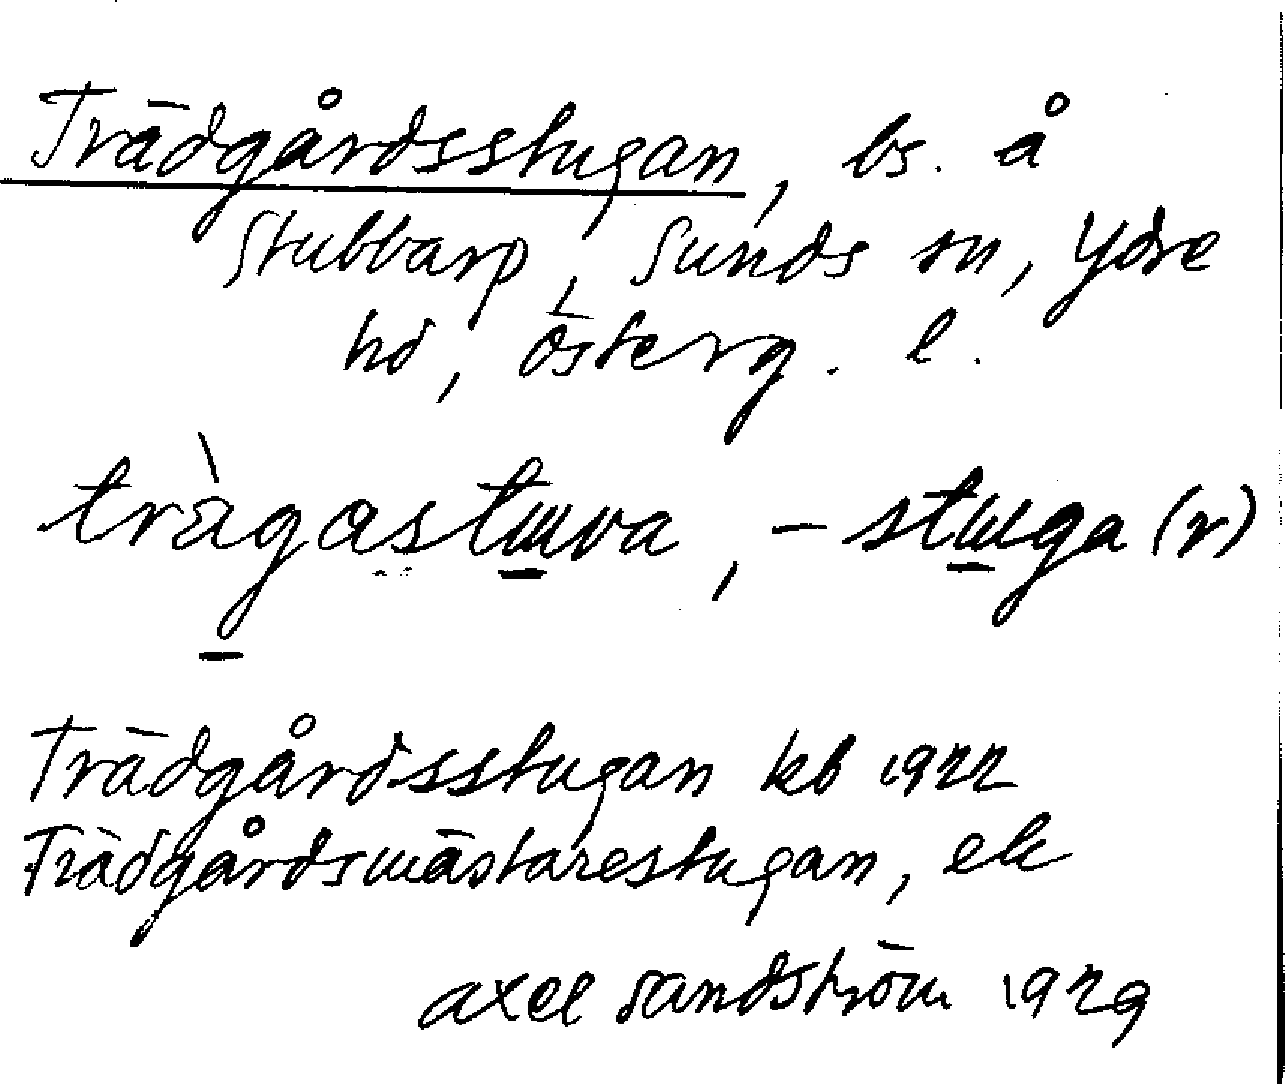 Trädgårdsstugan, bs. å
Stubbarp, Sunds sn, Ydre
hd, Österg. l.
tràgastɯva, -stɯga (r)
Trädgårdsstugan kb 1922
Trädgårdsmästarestugan, ek
Axel Sandström 1929